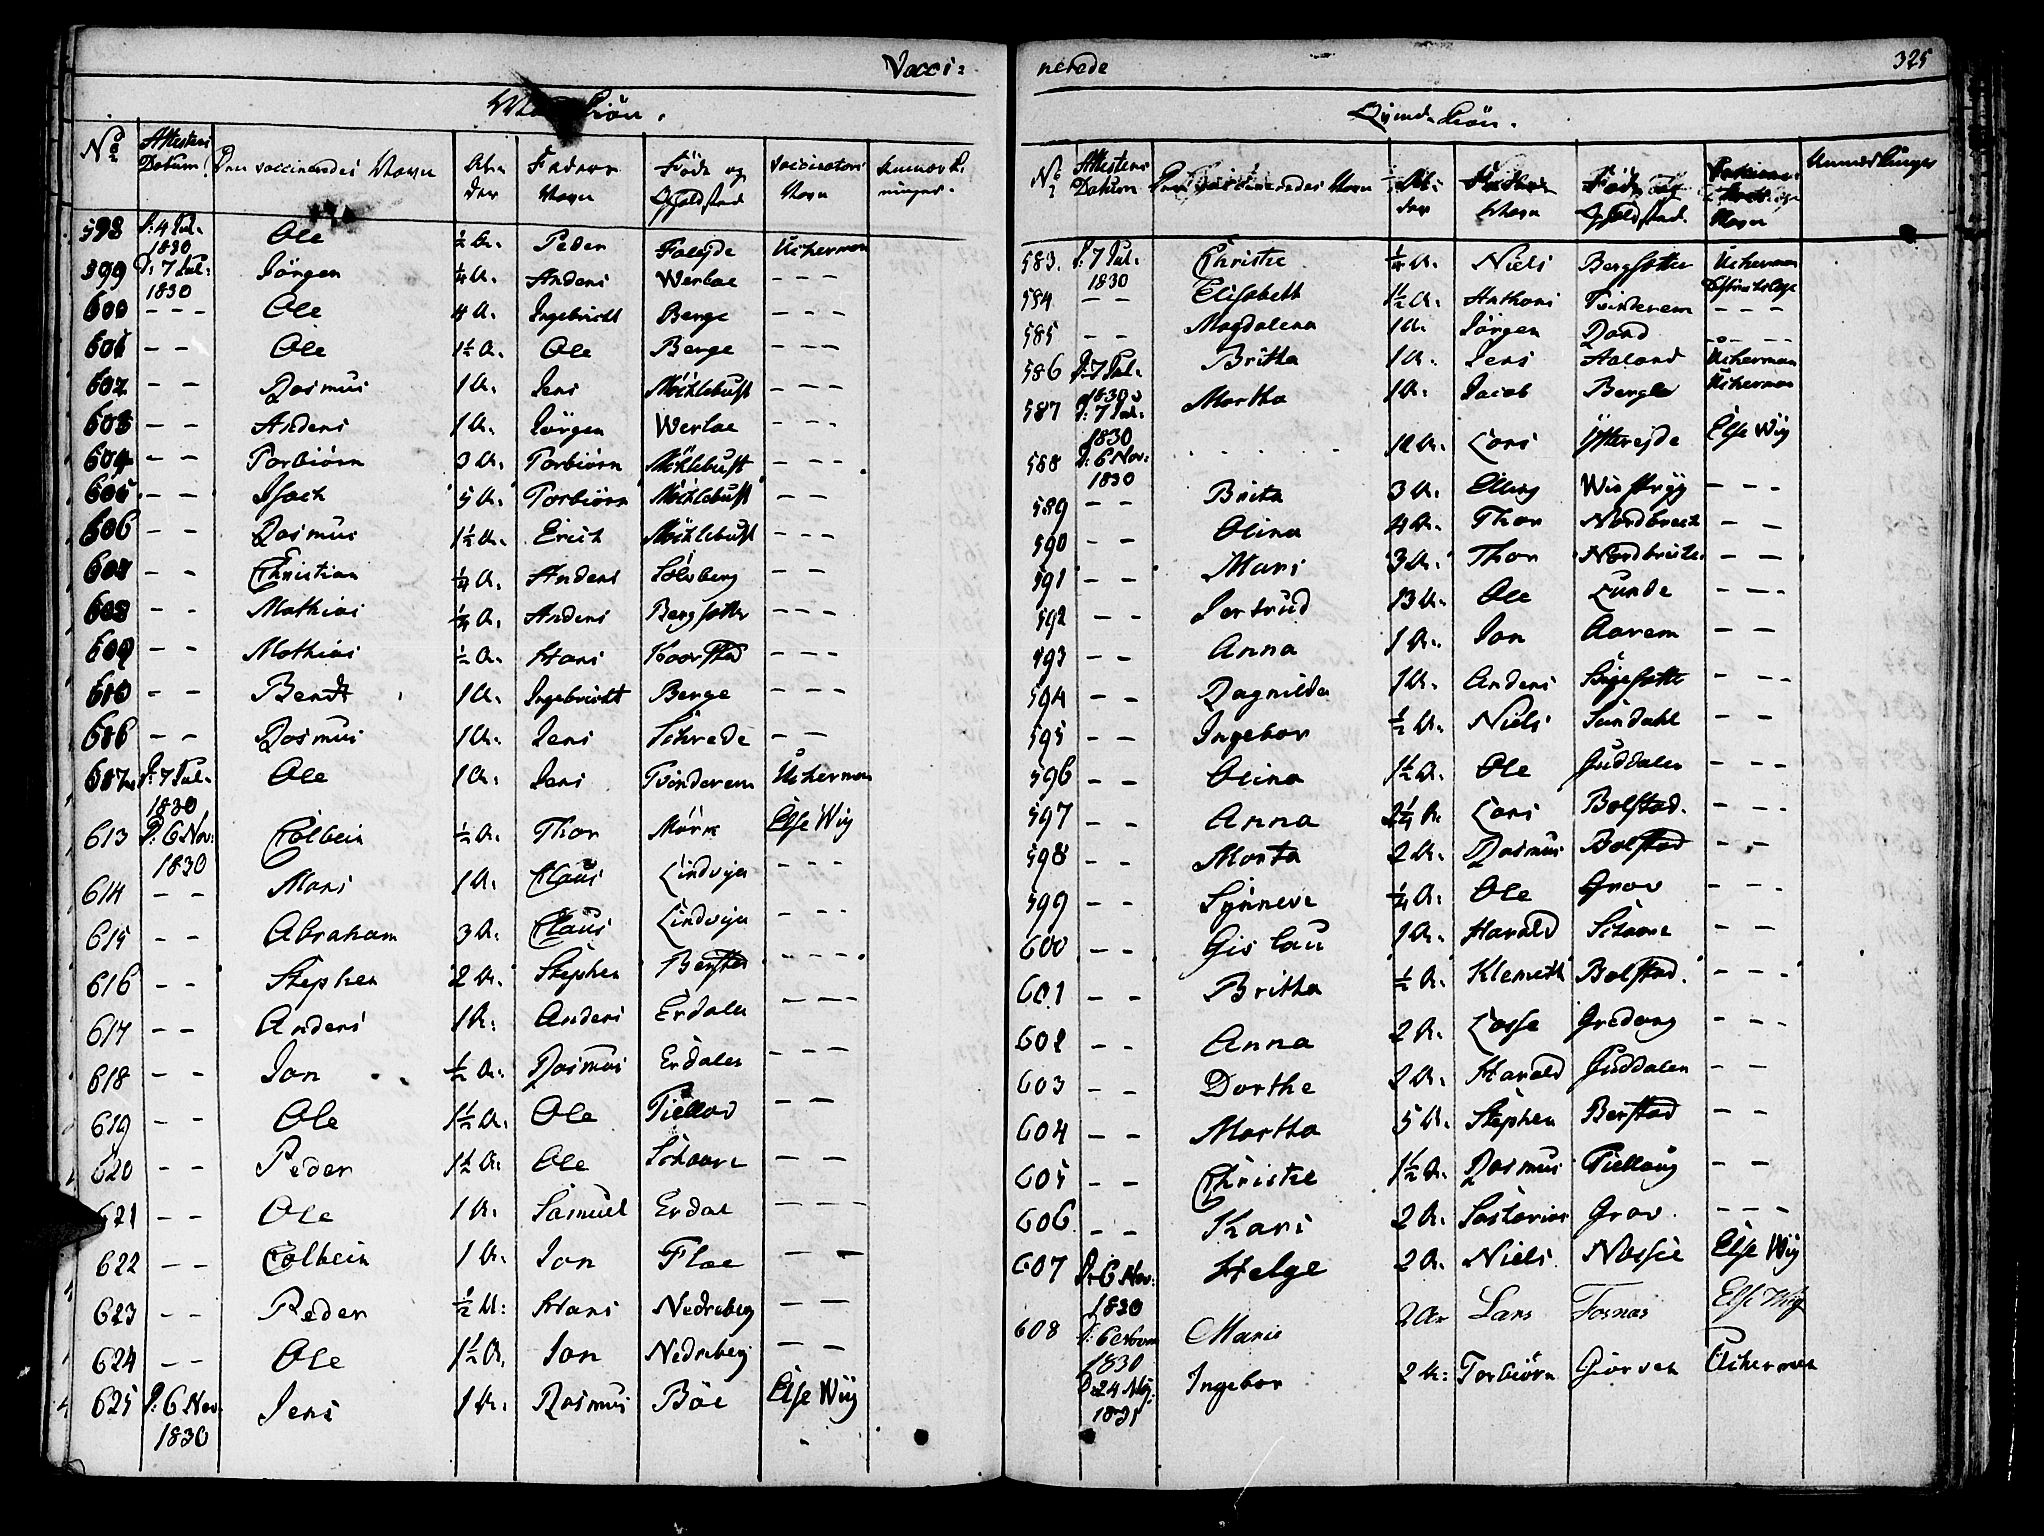 Vacci=
Mand Kiön.
No
Attestens Datum
Den vaccineredes Navn
Al-
der
Faders
Navn
Føde og
Opholdsted
Vaccinators
Navn
Anmærk-
ninger.
598 D: 4 Jul. 1830 Ole ½ A. Peder Faleyde Ucherman
599 D: 7 Jul: 1830 Jörgen ¼ A. Anders Werlae - - -
600 - - - Ole 4 A. Ingebricht Berge - - -
601 - - Ole 1½ A. Ole Berge - - -
602 - - Rasmus 1 A. Jens Möklebust - - -
603 - - Anders 1 A. Jörgen Werlae - - -
604 - - Torbiörn 3 A. Torbiörn Möklebust - - -
605 - - Isach 5 A. Torbiörn Möklebust - -
606 - - Rasmus 1½ A. Erich Möklebust - - -
607 - - Christian ¼ A. Anders Solvberg - -
608 - - Mathias ¼ A. Anders Bergsette - - -
609 - - Mathias ½ A. Hans Koorstad - - -
610 - - Bendt 1 A. Ingebricht Berge - - -
611 - - Rasmus 1 A. Jens Schrede - -
612 D: 7 Jul. 1830 Ole 1 A. Jens Tvinderem Ucherman
613 D: 6 Nov: 1830 Colbein ½ A. Thor Mörk Else Wiig
614 - - Mons 1 A. Claus Lindvigen - - -
615 - - Abraham 3 A. Claus Lindvigen - - -
616 - - Stephen 2 A. Stephen Berstad - - -
617 - - Anders 1 A. Anders Erdalen - - -
618 - - Jon ½ A. Rasmus Erdalen - - -
619 - - Ole 1½ A. Ole - -
620 - - Peder 1½ A. Ole Schaare - - -
621 - - Ole 1 A. Samuel Erdal - - -
622 - - Colbein 1 A. Jon Floe - -
623 - - Peder ½ A: Hans Nedreberg - -
624 - - Ole 1½ A. Jon Nedreberg - -
625 D: 6 Nov. 1830 Jens 1 A. Rasmus Böe Else Wiig
nerede
325
Qvinde Kiön.
No
Attestens Datum
Den Vaccineredes Navn
Al-
der
Faders
Navn
Føde og
Opholdsted.
Navn
Anmærkninger
583. D: 7 Jul. 1830 Christie ¼ A. Niels Bergsette Ucherman
584 - - Elisabeth 1½ A. Anthoni Tvinderem - - -
585 - - Magdalena 1 A. Jörgen Rand - - -
586 D: 7 Jul. 1830 Britha 1 A. Jens Aaland Ucherman
587 D: 7 Jul. 1830 Martha 1 A. Jacob Berge Ucherman
588 D: 6 Nov: 1830 . . . . . 12 A. Lars Ytterejde Else Wiig
589 - - Brita 3 A. Elling - - -
590 - - Olina 4 A. Thor Nordbrech - - -
591 - - Mari 3 A. Thor Nordbrech - -
592 - - Jertrud 13 A. Ole Lunde - - -
593 - - Anna 1 A. Jon Aarem - -
594 - - Ragnilda 1 A. Anders - - -
595 - - Ingebor ½ A. Niels Sundahl - -
596 - - Olina 1½ A. Ole Guddalen - - -
597 - - Anna 2¼ A. Lars Bolstad. - - -
598 - - Marta 2 A. Rasmus Bolstad - -
599 - - Synneve ¼ A. Ole Grov - - -
600 - - Gislau 1 A. Harald Schaare - - -
601 - - Britha ½ A. Klemeth Bolstad. - - -
602 - - Anna 2 A. Lasse Gredung - - -
603 - - Dorthe 2 A. Harald Guddalen - -
604 - - Martha 5 A. Stephen Berstad - -
605 - - Christie 1½ A. Rasmus Tiellaug - -
606 - - Kari 2 A. Grov. - - -
607 D: 6 Nov: 1830 Helge 2 A. Niels Nossie Else Wiig
608 1830 Marie 2 A. Lars Fosnas Else Wiig
D: 24 1831 Ingebor 2 A: Torbiörn Giorven Ucherman